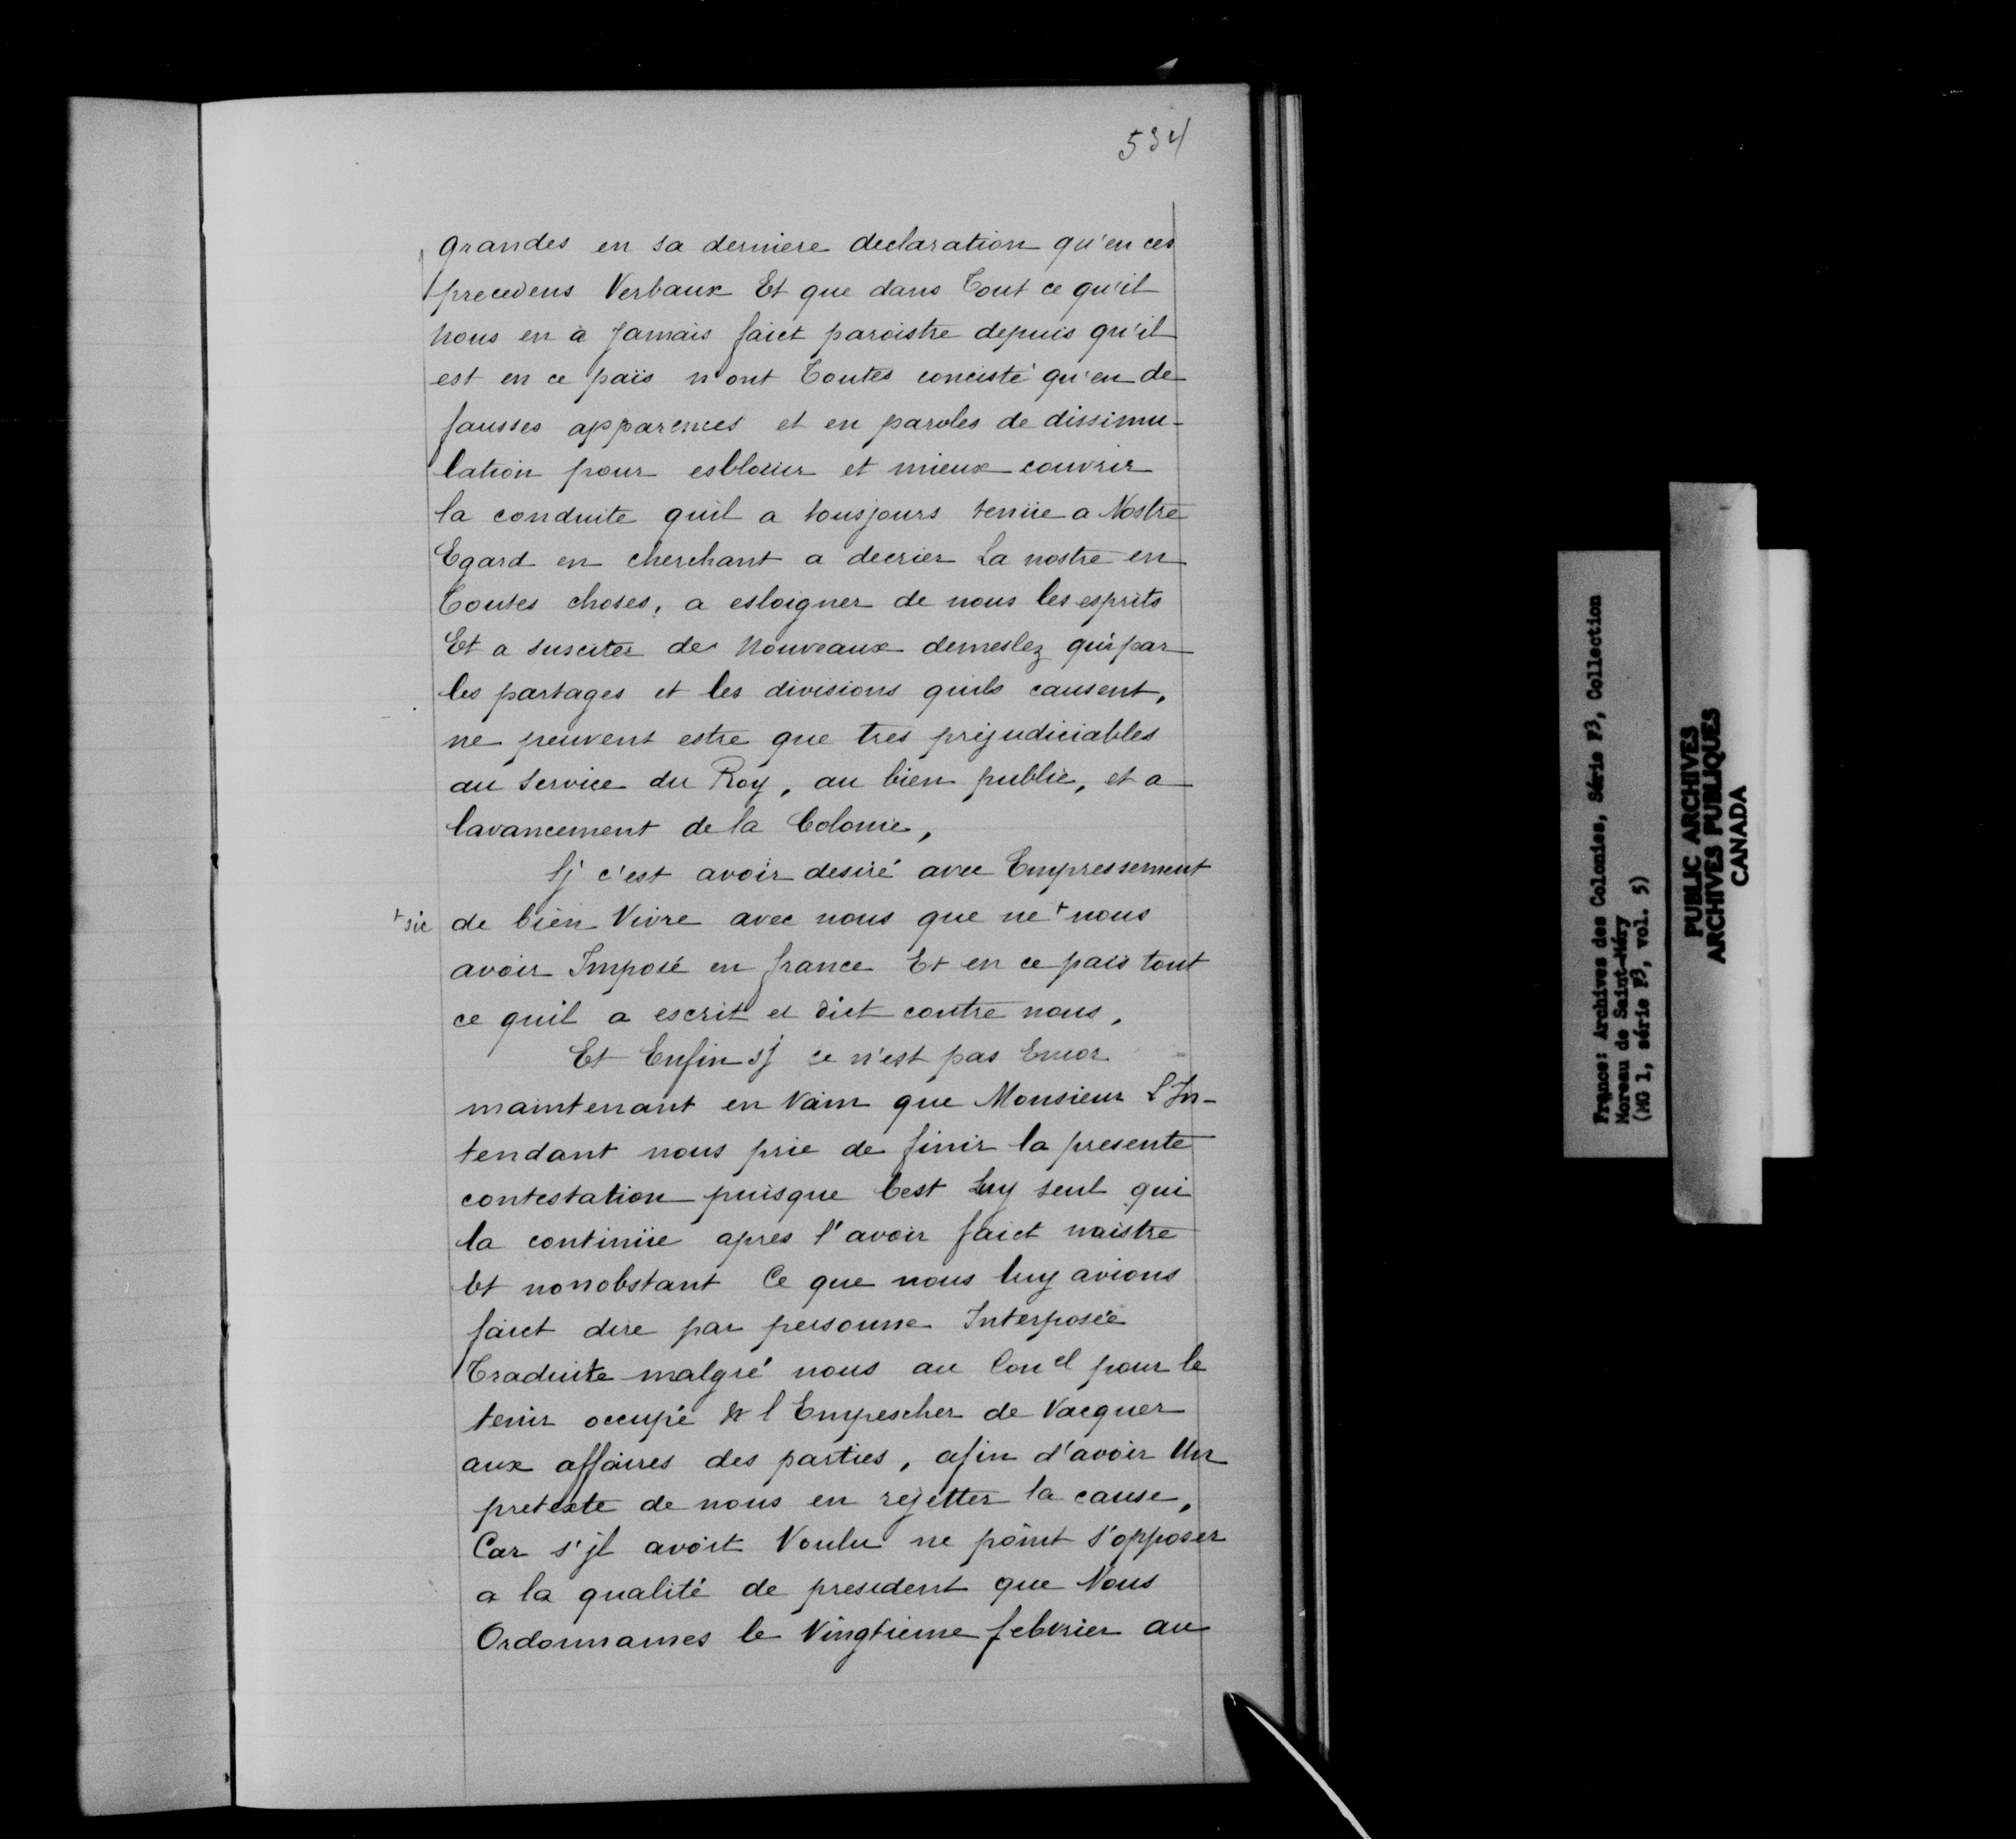 534
grandes en sa derniere declaration qu'en ces
precedens Verbaux Et que dans Tout ce qu'il
nous en à Jamais faict paroistre depuis qu'il
est en ce païs n'ont Toutes concisté qu'en de
fausses apparences et en paroles de dissimu-
lation pour esblouir et mieux couvrir
la conduite quil a tousjours tenüe a Nostre
Egard en cherchant a decrier La nostre en
Toutes choses, a esloigner de nous les esprits
Et a susciter de Nouveaux demeslez qui par
les partages et les divisions quils causent,
ne peuvent estre que tres prejudiciables
au service du Roy, au bien public, et a
lavancement de la Colonie,
Sj c'est avoir desiré avec Empressement
+ sic de bien Vivre avec nous que ne + nous
avoir Imposé en france Et en ce païs tout
ce quil a escrit et dict contre nous,
Et Enfin sj ce n'est pas Encor
maintenant en Vain que Monsieur L'In-
tendant nous prie de finir la presente
contestation puisque C'est Luy seul qui
la continüe apres l'avoir faict naistre
Et nonobstant Ce que nous luy avions
faict dire par personne Interposée
Traduite malgré nous au Con.el pour le
tenir occupé & l'Empescher de Vacquer
aux affaires des parties, afin d'avoir Un
pretexte de nous en rejetter la cause,
Car s'jl avoit Voulu ne point s'opposer
a la qualité de president que Nous
Ordonnames le Vingtieme febvrier au
France: Archives des Colonies, Série F3, Collection
Moreau de Saint-Méry
(MG 1, série F3, vol. 5)
PUBLIC ARCHIVES
ARCHIVES PUBLIQUES
CANADA